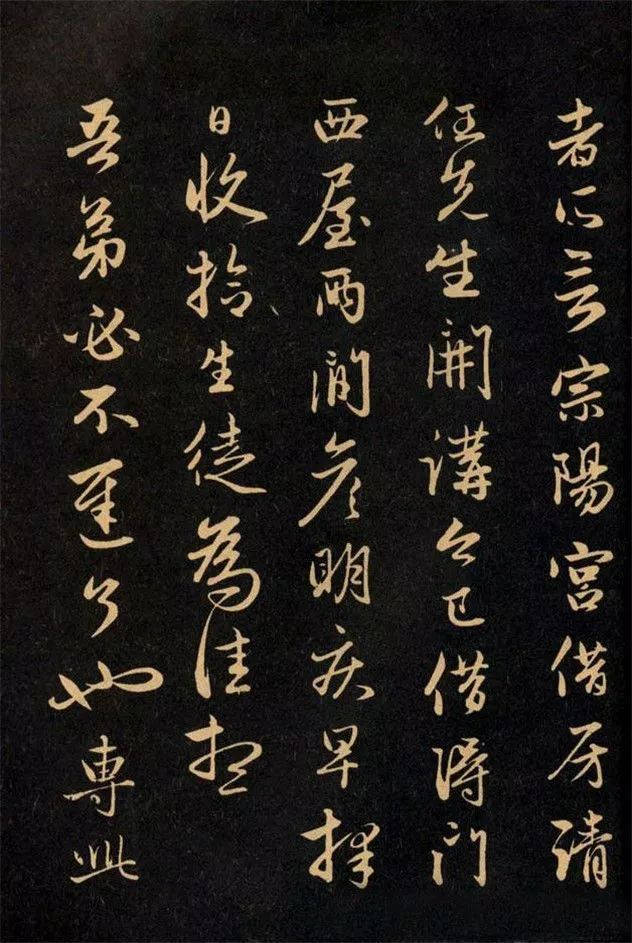 者所言宗陽宮借房請
任先生開講今已借得門
西屋兩間彥明疾早擇
日收拾生徒為佳想
吾弟必不遲了也專此